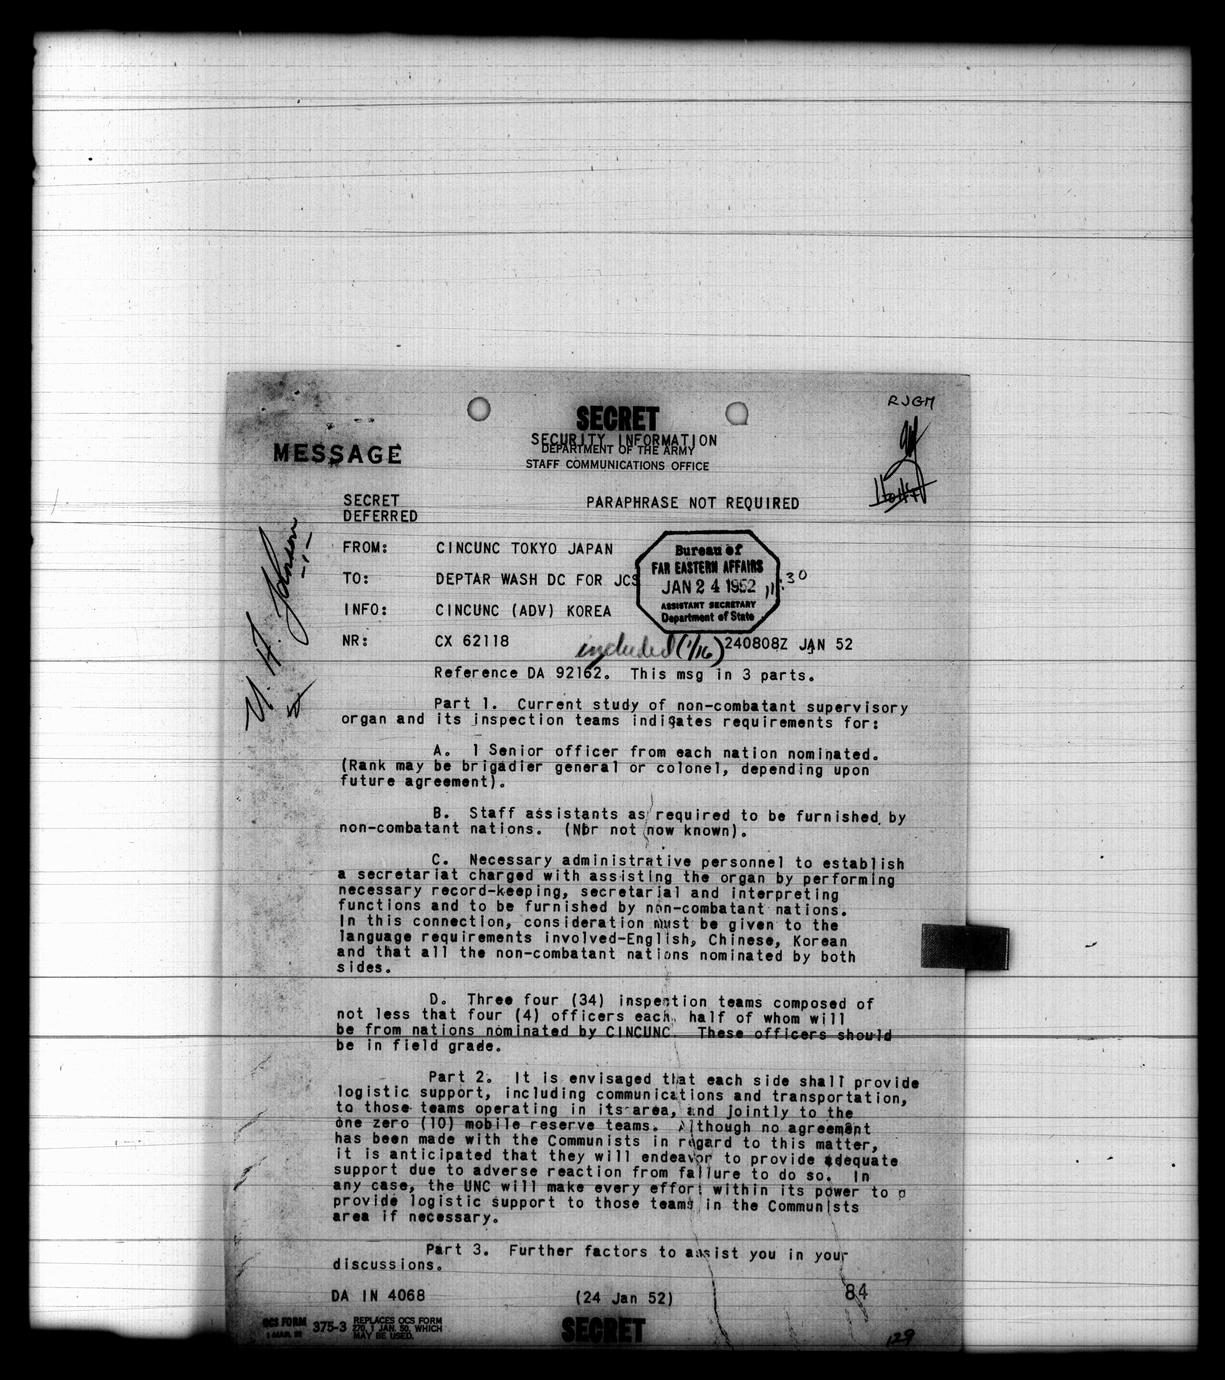 RJGM
SECRET
SECURITY INFORMATION
DEPARTMENT OF THE ARMY
MESSAGE
STAFF COMMUNICATIONS OFFICE
SECRET PARAPHRASE NOT REQUIRED
DEFERRED
FROM: CINCUNC TOKYO JAPAN
TO: DEPTAR WASH DC FOR JCS
INFO: CINCUNC (ADV) KOREA
NR: CX 62118 included (1/16) 240808Z JAN 52
Bureau of
FAR EASTERN AFFAIRS
JAN 24 1952
ASSISTANT SECRETARY
Department of State
U. A. Johnson
Reference DA 92162. This msg in 3 parts.
Part 1. Current study of non-combatant supervisory
organ and its inspection teams indicates requirements for:
A. 1 Senior officer from each nation nominated.
(Rank may be brigadier general or colonel, depending upon
future agreement).
B. Staff assistants as required to be furnished by
non-combatant nations. (Nbr not now known).
C. Necessary administrative personnel to establish
a secretariat charged with assisting the organ by performing
necessary record-keeping, secretarial and interpreting
functions and to be furnished by non-combatant nations.
In this connection, consideration must be given to the
language requirements involved-English, Chinese, Korean
and that all the non-combatant nations nominated by both
sides.
D. Three four (34) inspection teams composed of
not less that four (4) officers each, half of whom will
be from nations nominated by CINCUNC. These officers should
be in field grade.
Part 2. It is envisaged that each side shall provide
logistic support, including communications and transportation,
to those teams operating in its area, and jointly to the
one zero (10) mobile reserve teams. Although no agreement
has been made with the Communists in regard to this matter,
it is anticipated that they will endeavor to provide adequate
support due to adverse reaction from failure to do so. In
any case, the UNC will make every effort within its power to
provide logistic support to those teams in the Communists
area if necessary.
Part 3. Further factors to assist you in your
discussions.
DA IN 4068 (24 Jan 52) 84
OCS FORM 375-3 REPLACES OCS FORM
270, 1 JAN. 50, WHICH
MAY BE USED.
SECRET
129